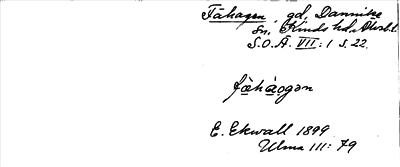 Fähagen, gd, Dannike
sn, Kinds hd, Älvsb. l.
S.O.Ä. VII: 1 s. 22.
fähàogən
E. Ekwall 1899
Ulma 111: 79